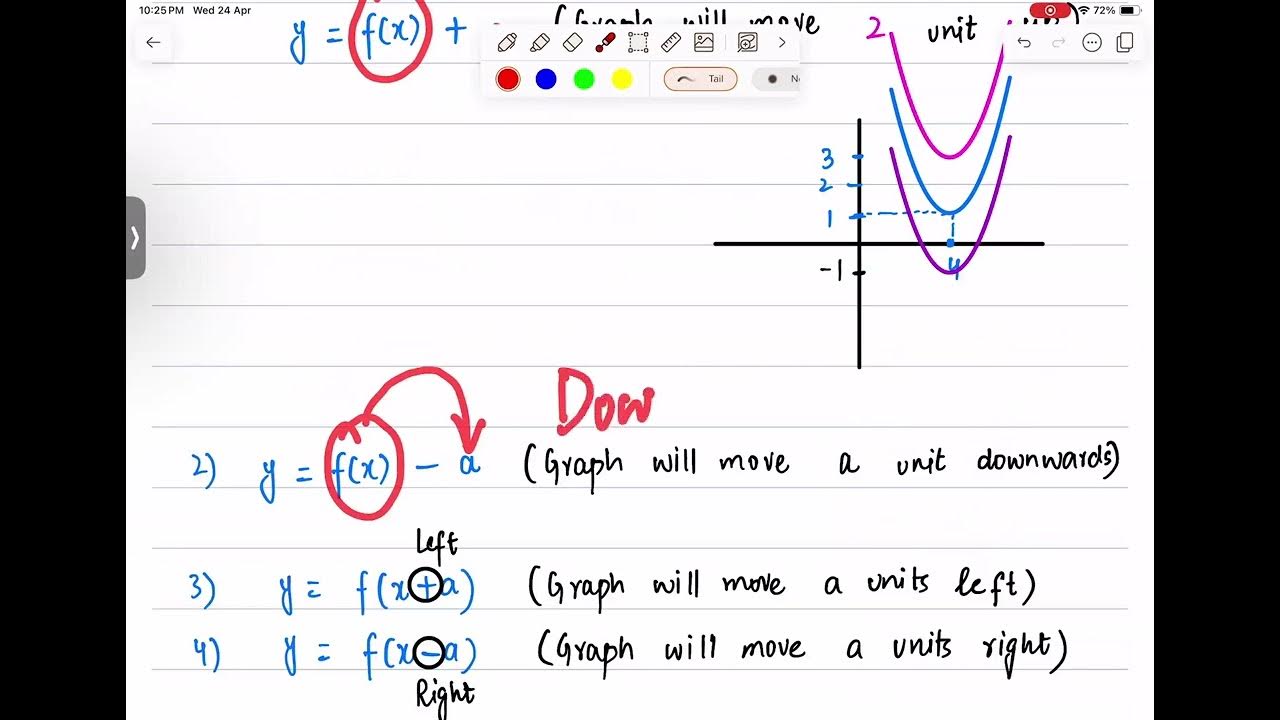 10:25 PM Wed 24 Apr
72%
y = f(x) + (Graph will move unit
Tail
2
3
2
1
4
-1
Dow
2) y = f(x) - a (Graph will move a unit downwards)
Left
3) y = f(x+a) (Graph will move a units left)
4) y = f(x-a) (Graph will move a units right)
Right